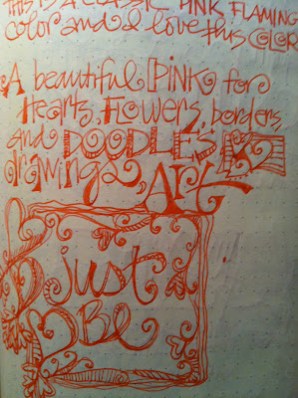 THIS IS A CLASSIC PINK FLAMING
color and I love this COLOR
A beautiful PINK for
Hearts, Flowers, borders,
and DOODLES
drawings, Art
just
Be